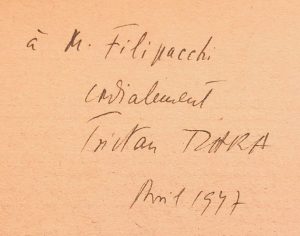 à M. Filipacchi
cordialement
Tristan TZARA
Avril 1947